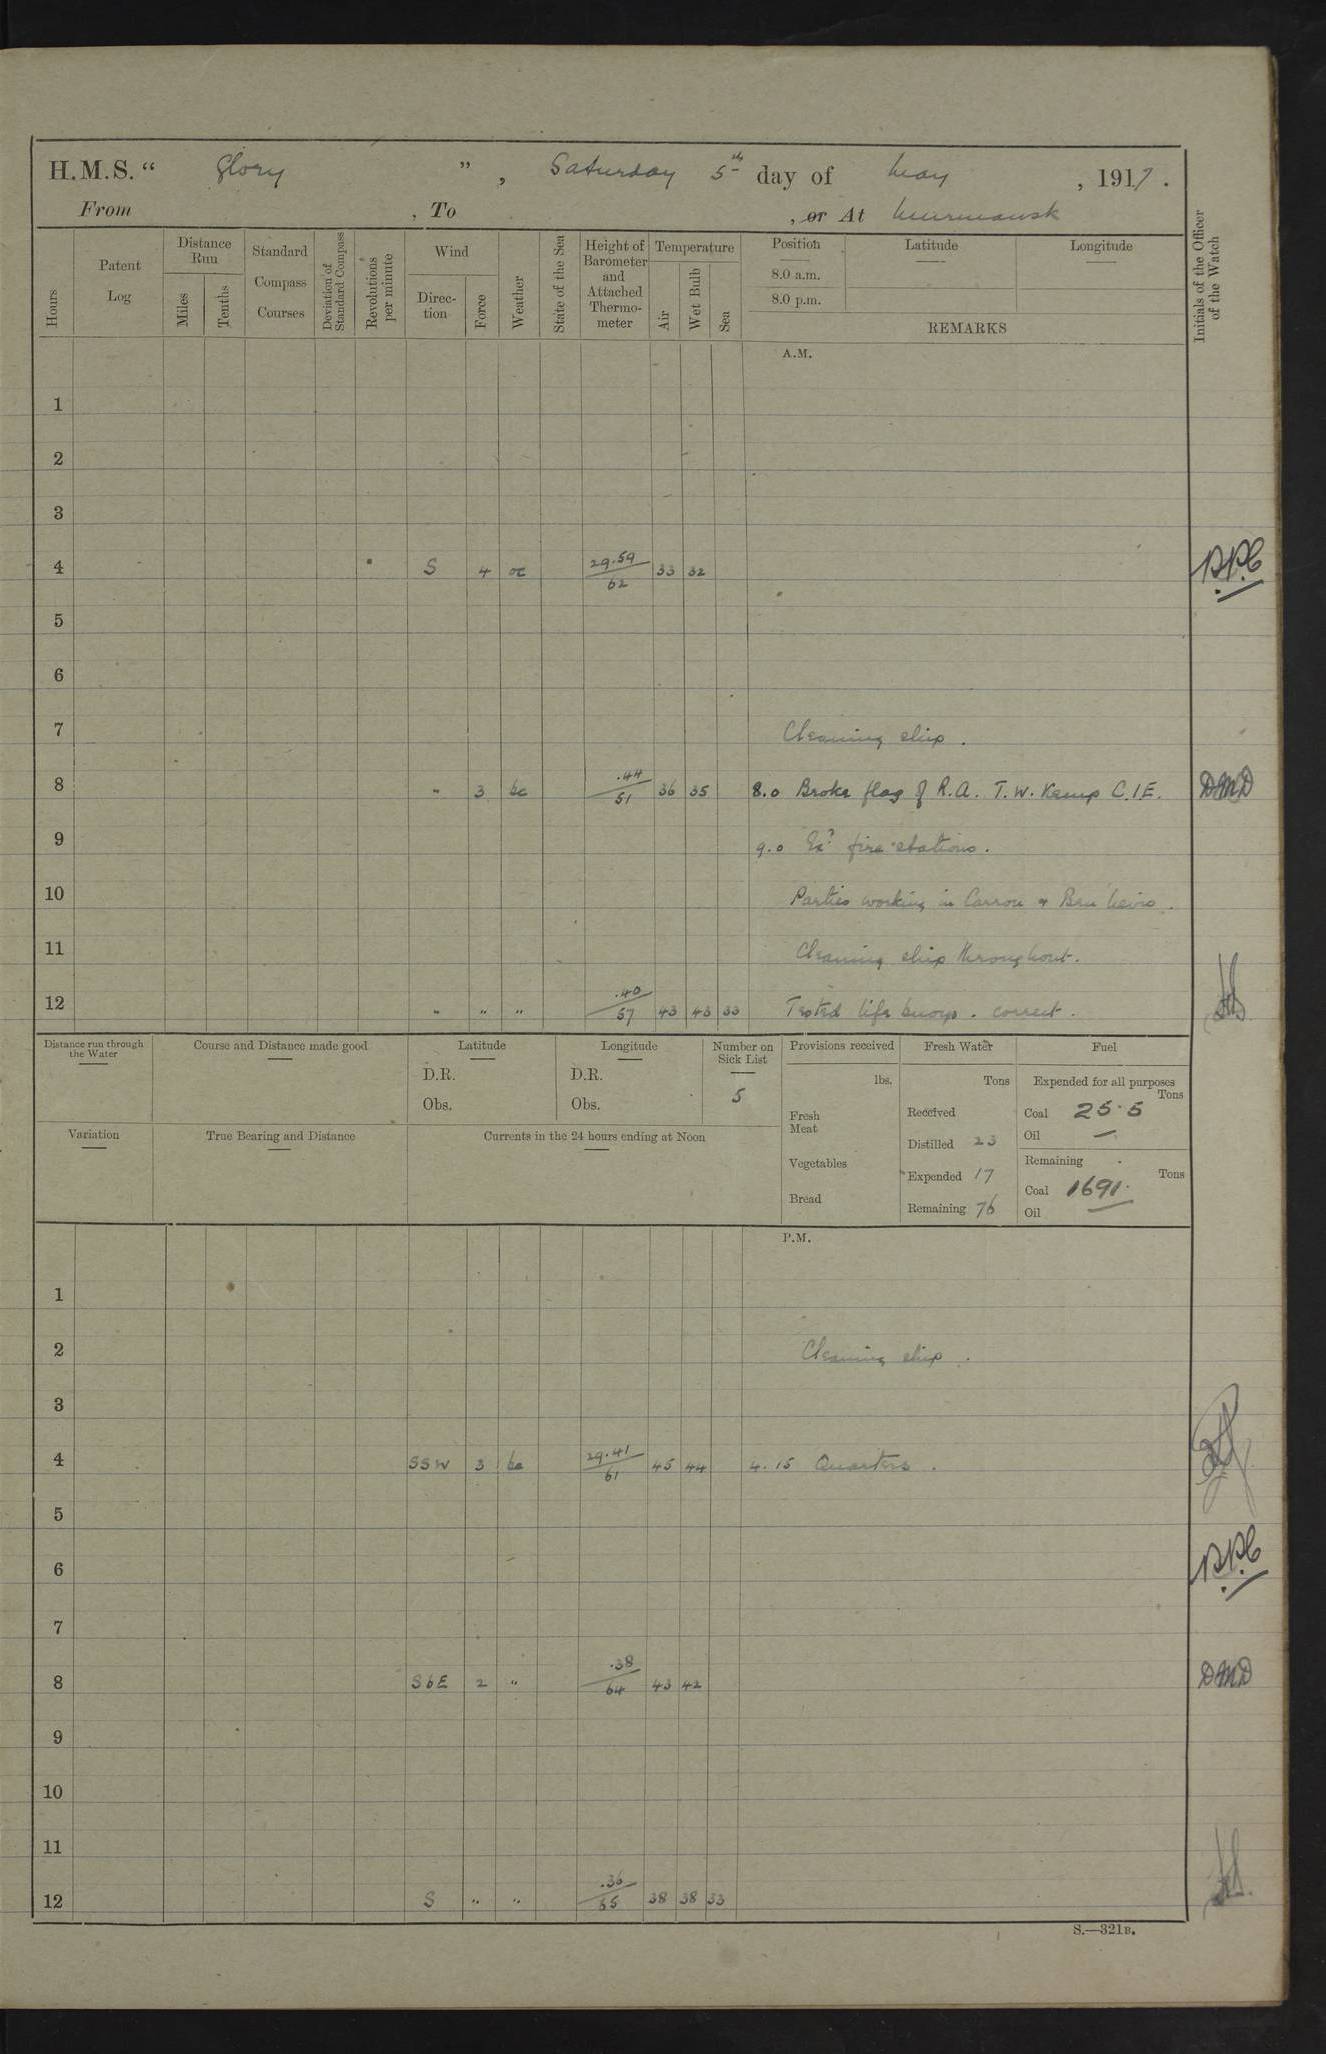 H.M.S. “ Glory ” , Saturday 5th day of May , 1917 .
From , To , or At Murmansk
Hours
Patent Log
Distance Run
Miles
Tenths
Standard Compass Courses
Deviation of Standard Compass
Revolutions per minute
Wind
Direction
Force
Weather
State of the Sea
Height of Barometer and Attached Thermometer
Temperature
Air
Wet Bulb
Sea
Position
8.0 a.m.
8.0 p.m.
Latitude
Longitude
REMARKS
Initials of the Officer of the Watch
A.M.
1
2
3
4 S 4 oc 29.59/62 33 32 
5
6
7 Cleaning ship .
8 " 3 bc .44/51 36 35 8.0 Broke flag of R.A. T.W. Kemp C.I.E. DMD
9 9.0 Exd fire stations .
10 Parties working in Carron & Ben Nevis .
11 Cleaning ship throughout .
12 " " " .40/57 43 43 33 Tested life buoys . correct .
Distance run through the Water
Course and Distance made good
Latitude
D.R.
Obs.
Longitude
D.R.
Obs.
Number on Sick List
5
Variation
True Bearing and Distance
Currents in the 24 hours ending at Noon
Provisions received
lbs.
Fresh Meat
Vegetables
Bread
Fresh Water
Tons
Received
Distilled 23
Expended 17
Remaining 76
Fuel
Expended for all purposes
Tons
Coal 25.5
Oil —
Remaining
Tons
Coal 1691.
Oil —
P.M.
1
2 Cleaning ship .
3
4 SSW 3 bc 29.41/61 45 44 4.15 Quarters .
5
6
7
8 SbE 2 " .38/64 43 42 DMD
9
10
11
12 S " " .36/65 38 38 33
S.—321B.